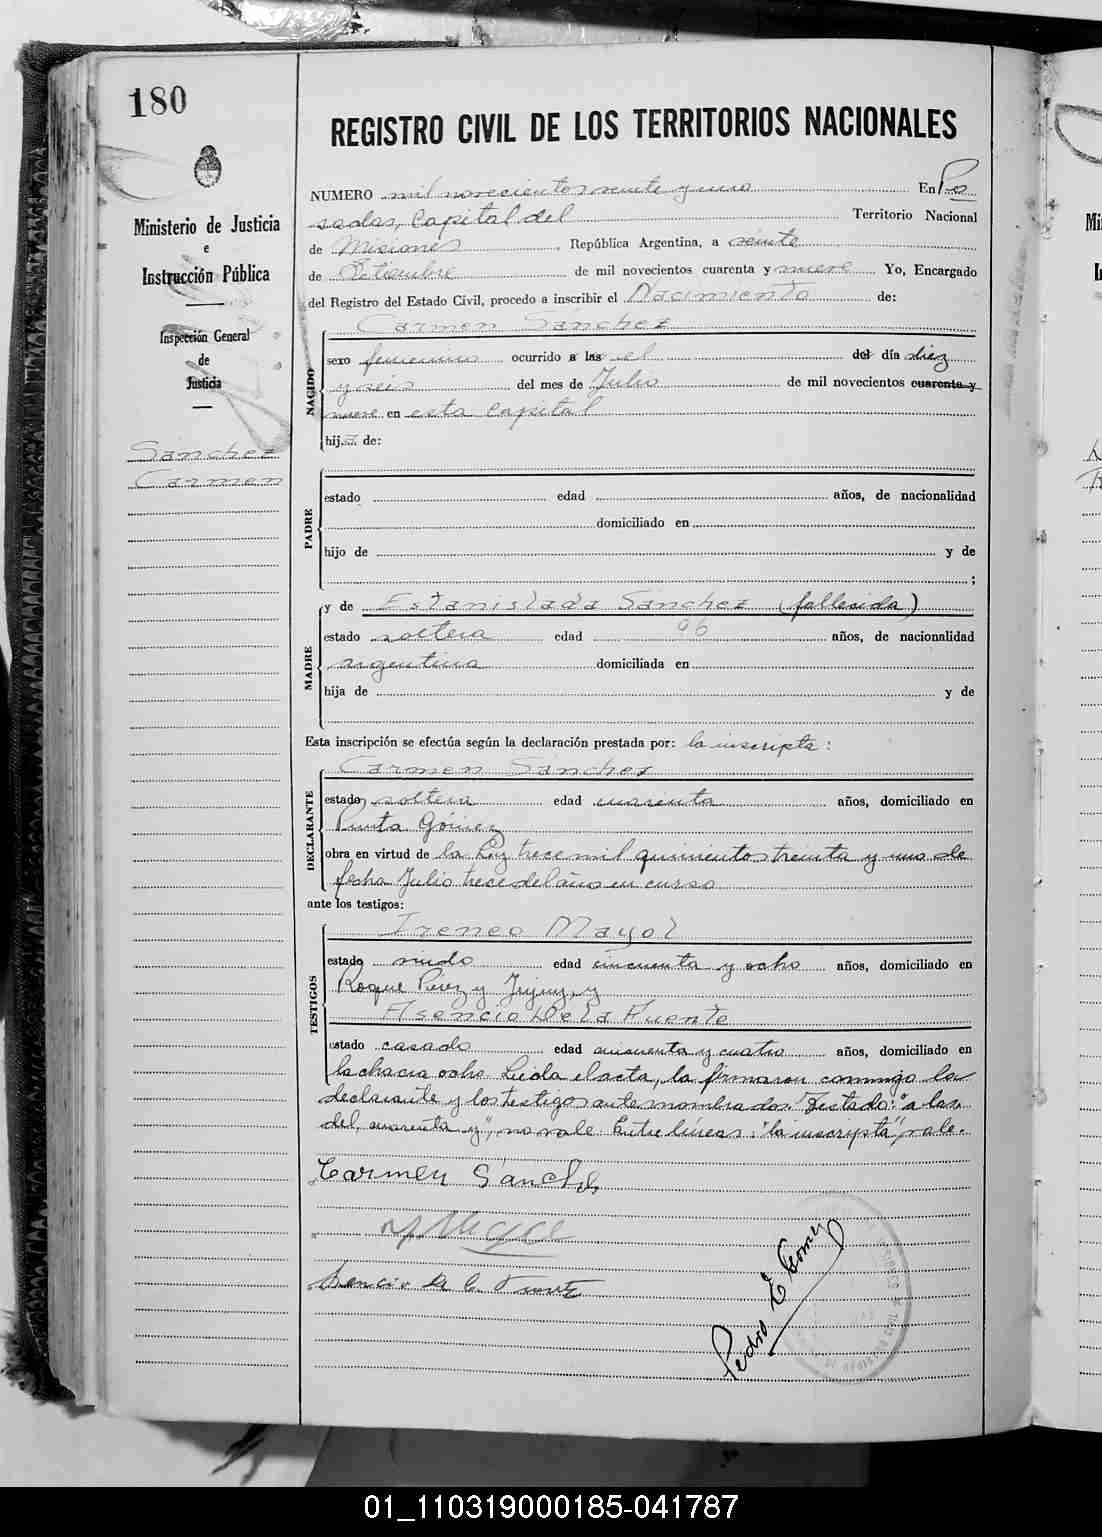 180
Ministerio de Justicia
e
Instrucción Pública
Inspección General
de
Justicia
Sánchez
Carmen
REGISTRO CIVIL DE LOS TERRITORIOS NACIONALES
NUMERO mil novecientos veinte y uno En Po
sadas, Capital del Territorio Nacional
de Misiones República Argentina, a veinte
de Setiembre de mil novecientos cuarenta y nueve Yo, Encargado
del Registro del Estado Civil, procedo a inscribir el Nacimiento de:
Carmen Sánchez
NACIDO
sexo femenino ocurrido a las el del día diez
y seis del mes de Julio de mil novecientos cuarenta y
nueve en esta Capital
hija de:
PADRE
estado edad años, de nacionalidad
domiciliado en
hijo de y de
;
MADRE
y de Estanislada Sánchez (fallecida)
estado soltera edad 96 años, de nacionalidad
argentina domiciliada en
hija de y de
Esta inscripción se efectúa según la declaración prestada por: la inscripta:
DECLARANTE
Carmen Sánchez
estado soltera edad cuarenta años, domiciliado en
Punta Gómez
obra en virtud de la Ley trece mil quinientos treinta y uno de
fecha Julio trece del año en curso
ante los testigos:
TESTIGOS
Ireneo Mayol
estado viudo edad cincuenta y ocho años, domiciliado en
Roque Perez y Jujuy, y
Asencio De la Fuente
estado casado edad cincuenta y cuatro años, domiciliado en
la chacra ocho Leída el acta, la firmaron conmigo la
declarante y los testigos antenombrados. Testado: "a las,
del, cuarenta y", no vale. Entre líneas: "la inscripta", vale.
Carmen Sánchez
Asencio de la Fuente
Pedro E Gomez
01_110319000185-041787